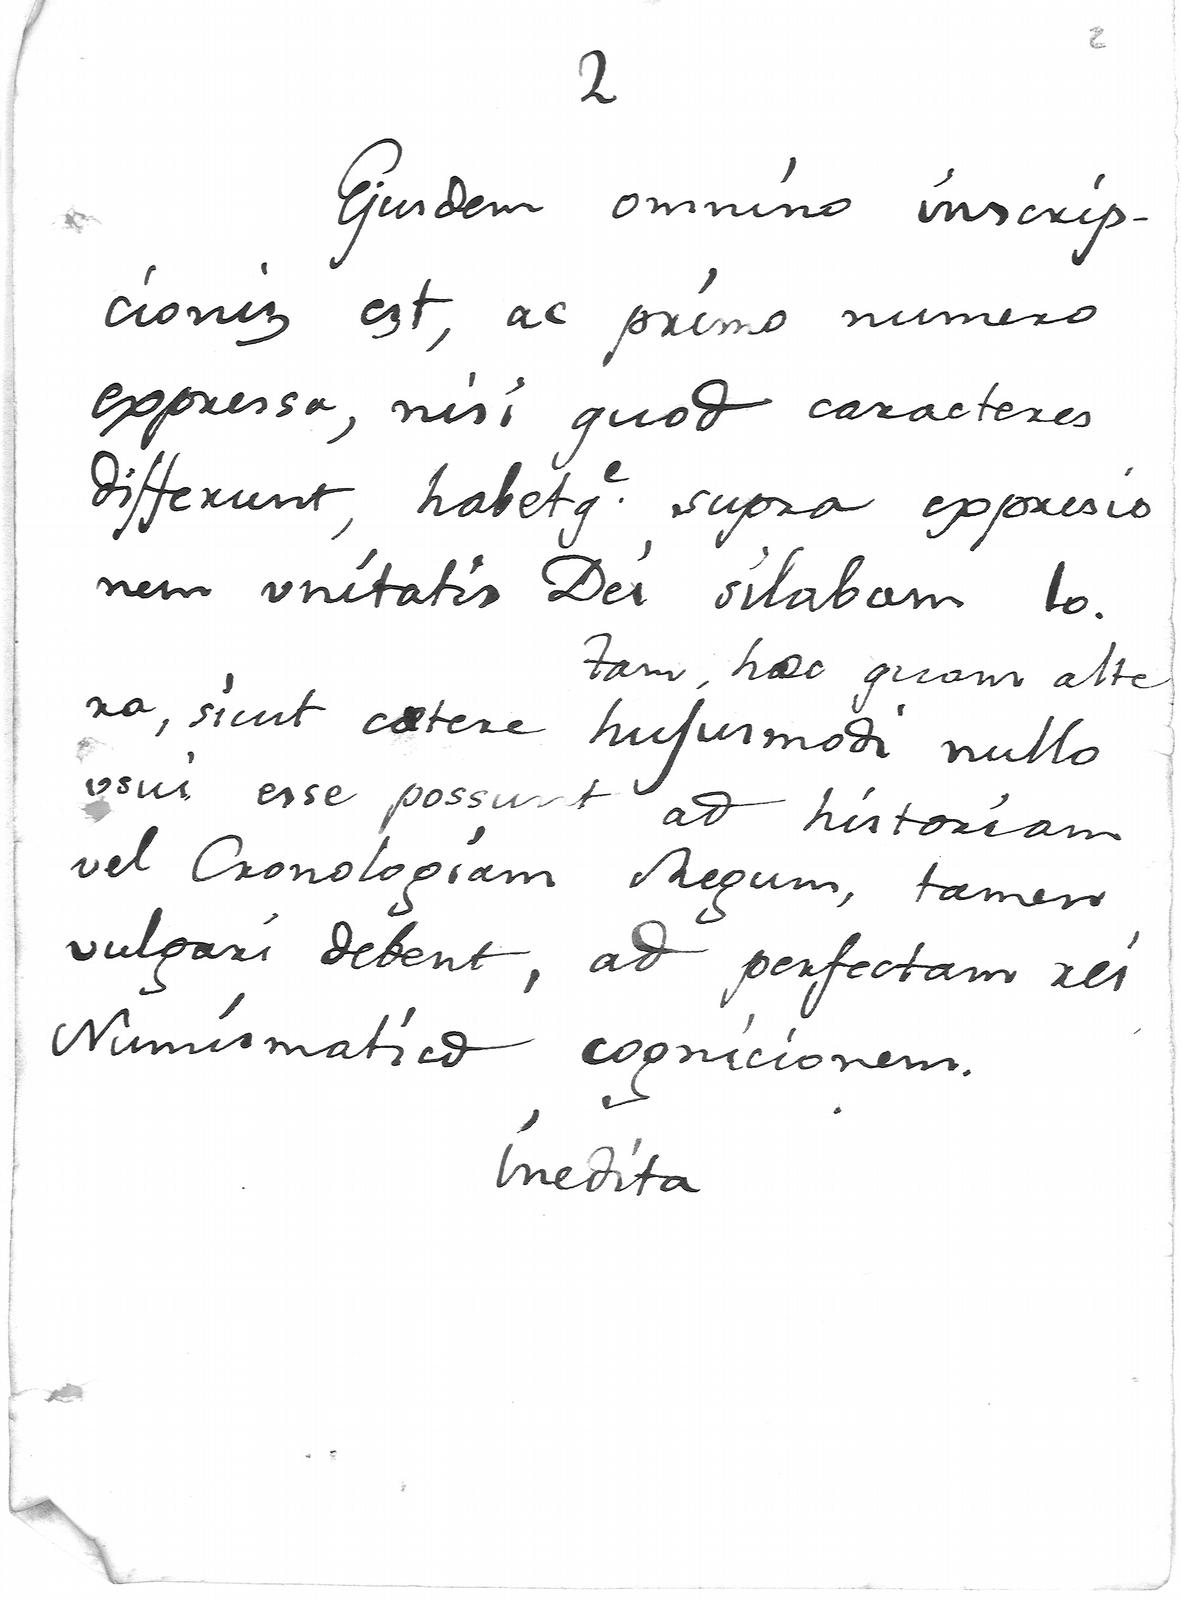 2
2
Ejusdem omnino inscrip-
cionis est, ac primo numero
expressa, nisi quod caracteres
differunt, habetqe. supra expresio
nem vnitatis Dei silabam lo.
Tam, hæc quam alte
ra, sicut cætere hujusmodi nullo
vsui esse possunt ad historiam
vel Cronologiam Regum, tamen
vulgari debent, ad perfectam rei
Numismaticæ cognicionem.
inedita